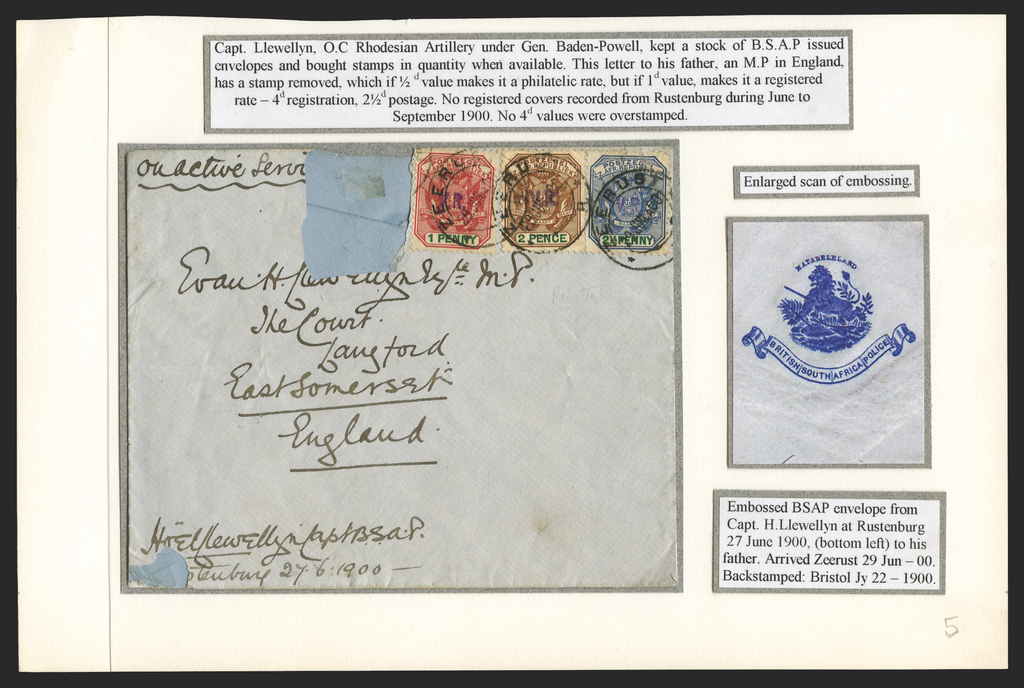 Capt. Llewellyn, O.C Rhodesian Artillery under Gen. Baden-Powell, kept a stock of B.S.A.P issued
envelopes and bought stamps in quantity when available. This letter to his father, an M.P in England,
has a stamp removed, which if ½ d value makes it a philatelic rate, but if 1d value, makes it a registered
rate – 4d registration, 2½d postage. No registered covers recorded from Rustenburg during June to
September 1900. No 4d values were overstamped.
On active Servi
POSTZEGEL
1 PENNY
2 PENCE
POSTZEGEL
2½ PENNY
ZEERUST
Evan. H. Llewellyn Esqre M.P.
The Court.
Langford
East Somerset
England
Hoël Llewellyn Capt B.S.a.P.
tenburg 27.6.1900 —
Enlarged scan of embossing.
MATABELELAND
BRITISH SOUTH AFRICA POLICE
Embossed BSAP envelope from
Capt. H.Llewellyn at Rustenburg
27 June 1900, (bottom left) to his
father. Arrived Zeerust 29 Jun – 00.
Backstamped: Bristol Jy 22 – 1900.
5